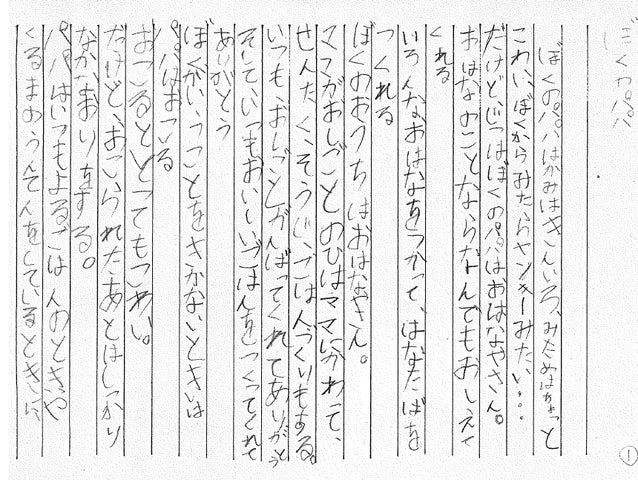 ぼくのパパ
ぼくのパパはかみはきんいろ、みためはちょっと
こわい、ぼくからみたらヤンキーみたい・・・
だけど、じつはぼくのパパはおはなやさん。
おはなのことならなんでもおしえて
くれる
いろんなおはなをつかって、はなたばを
つくれる
ぼくのおうちはおはなやさん。
ママがおしごとのひはママにかわって、
せんたく、そうじ、ごはんづくりもする。
いつもおしごとがんばってくれてありがとう
そして、いつもおいしいごはんをつくってくれて
ありがとう
ぼくがいうことをきかないときは
パパはおこる
おこるととってもこわい。
だけど、おこられたあとはしっかり
なかなおりをする。
パパはいつもよるごはんのときや
くるまのうんてんをしているときに
①